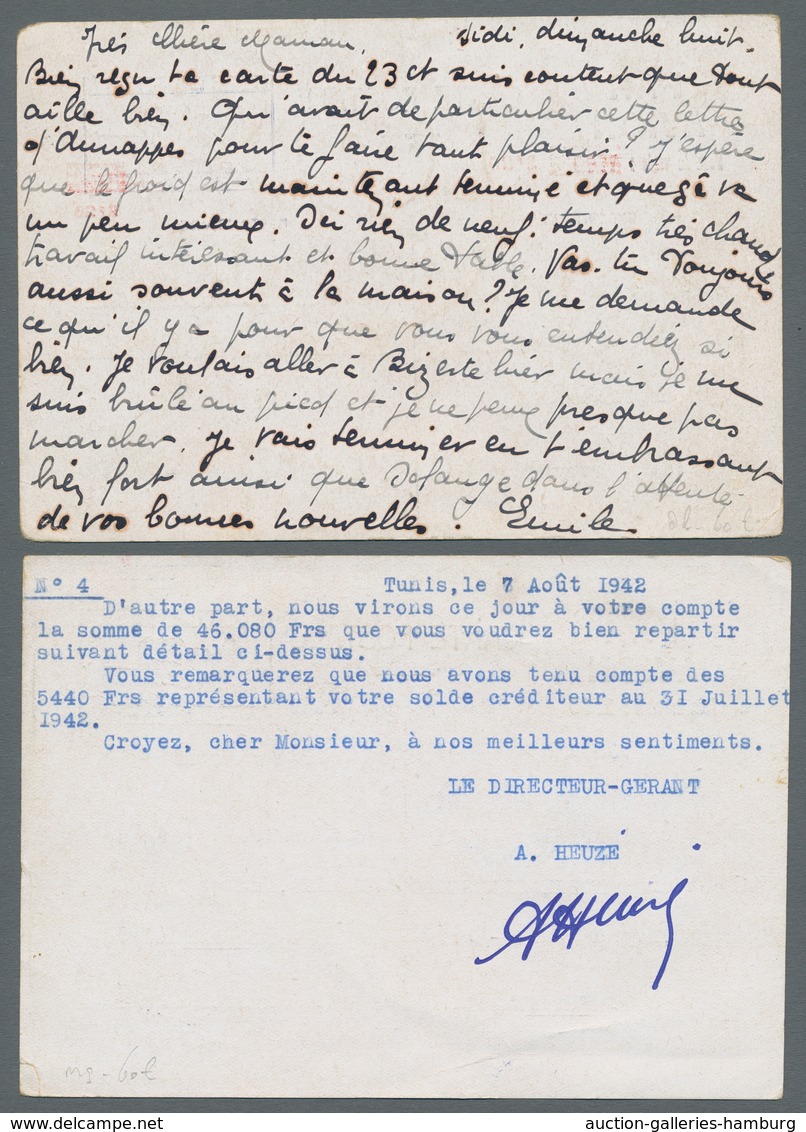 Très Chère Maman, Sidi, dimanche huit.
Bien reçu ta carte du 23 ct suis content que tout
aille bien. Qu'avait de particulier cette lettre
d' pour te faire tant plaisir? J'espère
que le froid est maintenant terminé et que ça va
un peu mieux. Ici rien de neuf: temps très chaud
travail intéressant et bonne table. Vas-tu toujours
aussi souvent à la maison? Je me demande
ce qu'il y a pour que vous vous entendiez si
bien. Je voulais aller à Bizerte hier mais je me
suis brûlé au pied et je ne peux presque pas
marcher. Je vais terminer en t'embrassant
bien fort ainsi que Solange dans l'attente
de vos bonnes nouvelles. Emile
N° 4 Tunis, le 7 Août I942
D'autre part, nous virons ce jour à votre compte
la somme de 46.080 Frs que vous voudrez bien repartir
suivant détail ci-dessus.
Vous remarquerez que nous avons tenu compte des
5440 Frs représentant votre solde créditeur au 3I Juillet
I942.
Croyez, cher Monsieur, à nos meilleurs sentiments.
LE DIRECTEUR-GERANT
A. HEUZÉ
auction-galleries-hamburg